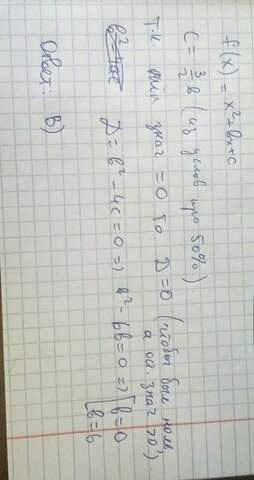 f(x) = x²+bx+c
c = 3/2 b (из услов про 50%).
Т.к мин знач = 0 то D=0 (чтобы был ноль,
а ост. знач >0).
D = b² - 4c = 0 => b² - 6b = 0 => [b=0
b=6
Ответ: B)